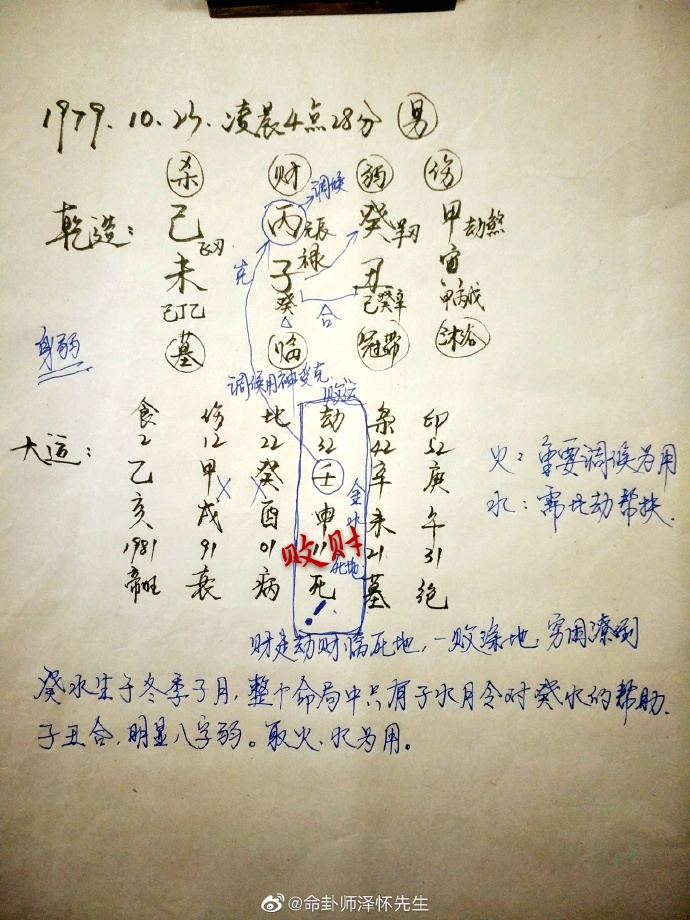 1979.10.23.凌晨4点28分 男
杀 财 弱 伤
调候
乾造： 己 丙 癸 甲
飞刃 羊刃 劫煞
禄
未 子 丑 寅
己丁乙 癸 己癸辛 甲丙戊
克 合
墓 临 冠带 沐浴
身弱
调候用神受克
败运
食 伤 比 劫 杂 印
大运： 2 12 22 32 42 52
乙 甲 癸 壬 辛 庚
亥 戌 酉 申 未 午
金水
死地
1981 91 01 11 21 31
败财
帝旺 衰 病 死 墓 绝
！
火：重要调候为用
水：需比劫帮扶.
财走劫财临死地，一败涂地，穷困潦倒
癸水生于冬季子月，整个命局中只有子水月令对癸水的帮助.
子丑合，明显八字弱。取火、水为用。
@命卦师泽怀先生